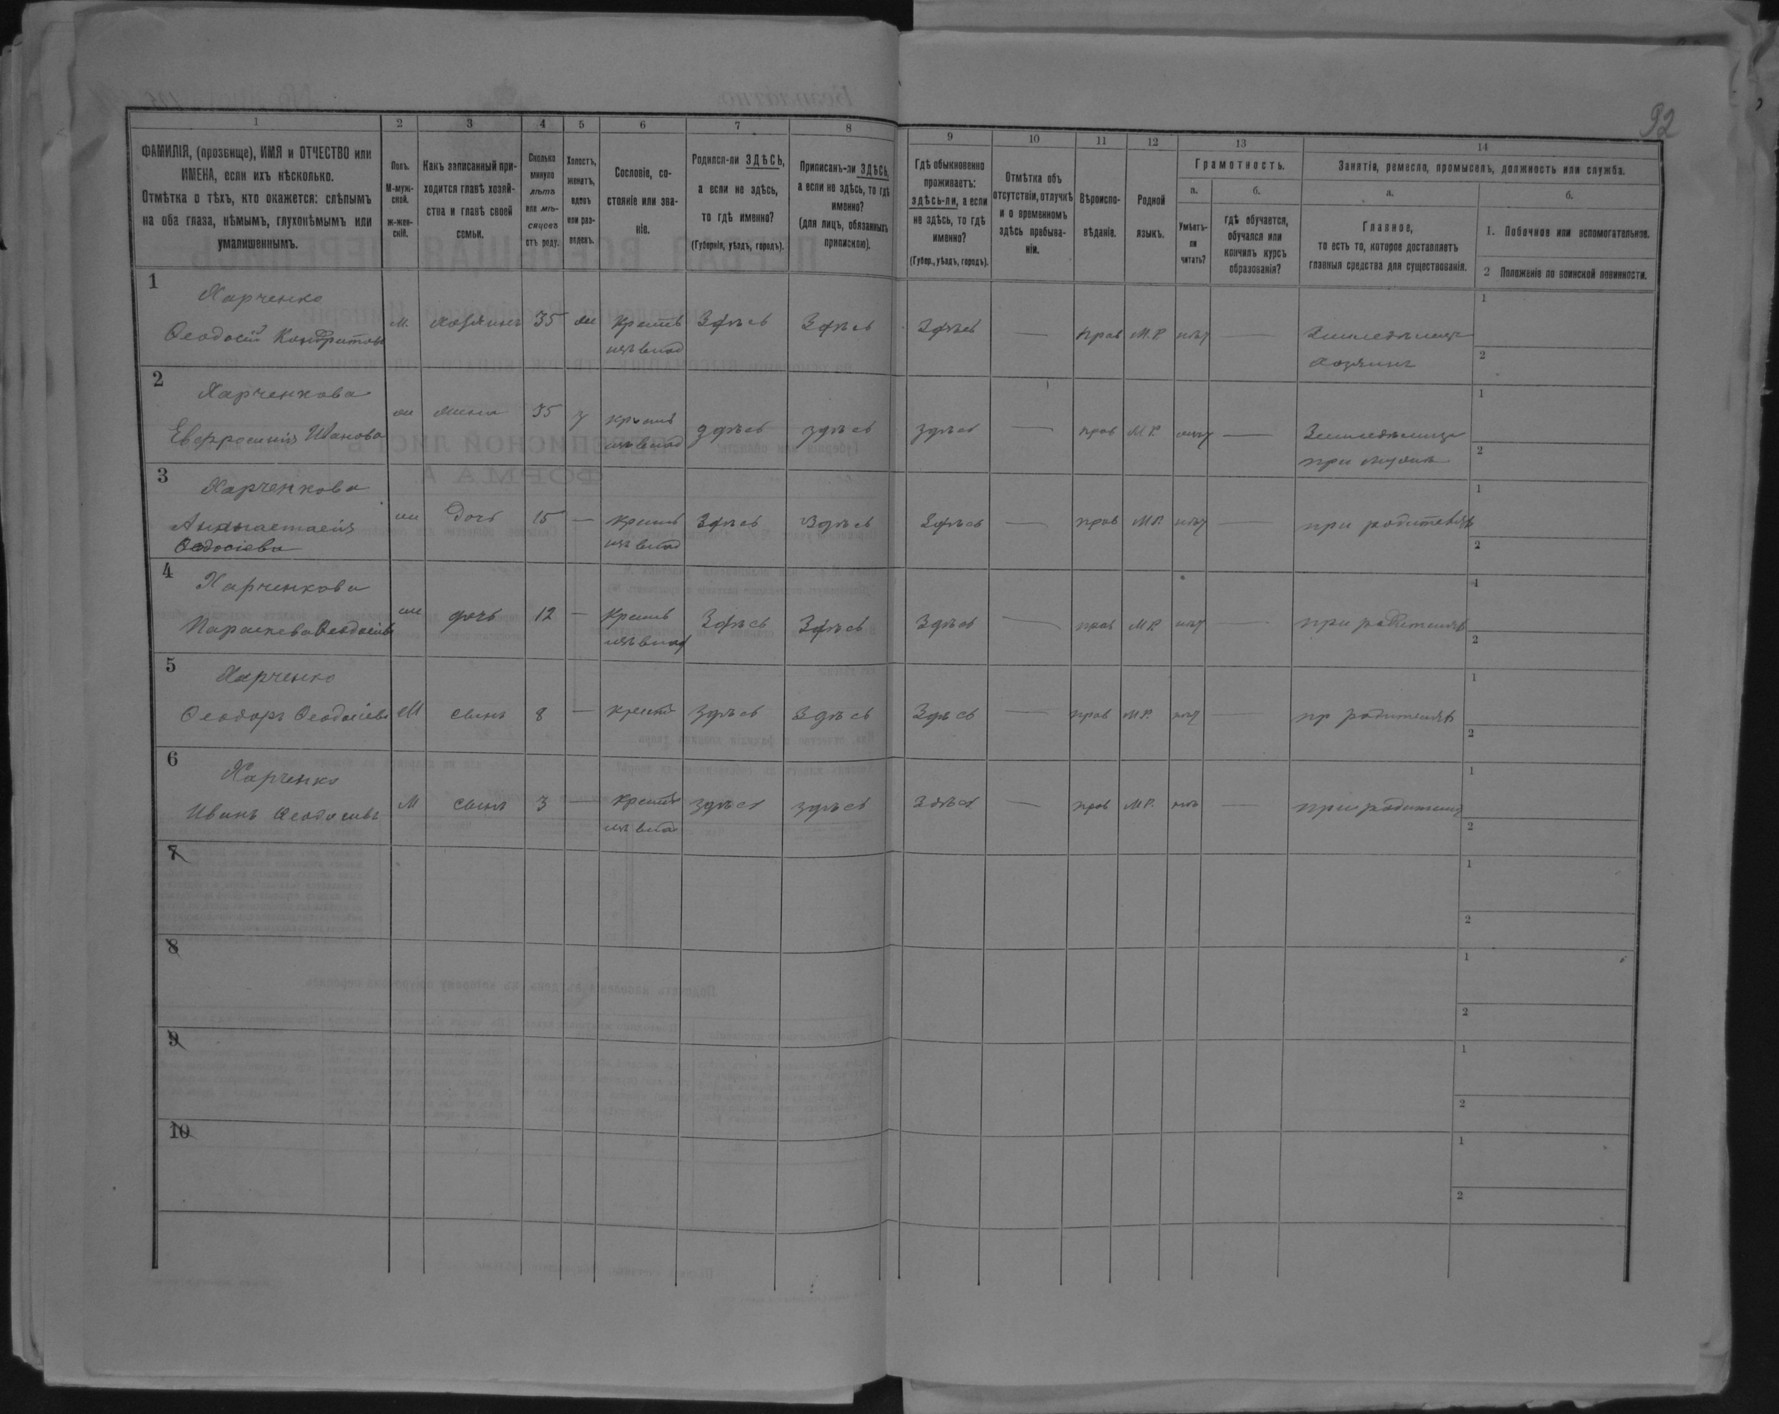 92
1 2 3 4 5 6 7 8 9 10 11 12 13 14
ФАМИЛІЯ, (прозвище), ИМЯ и ОТЧЕСТВО или
ИМЕНА, если ихъ нѣсколько.
Отмѣтка о тѣхъ, кто окажется: слѣпымъ
на оба глаза, нѣмымъ, глухонѣмымъ или
умалишеннымъ.
Полъ.
М-муж-
ской.
ж-жен-
скій.
Какъ записанный при-
ходится главѣ хозяй-
ства и главѣ своей
семьи.
Сколько
минуло
лѣтъ
или мѣ-
сяцевъ
отъ роду.
Холостъ,
женатъ,
вдовъ
или раз-
веденъ.
Сословіе, со-
стояніе или зва-
ніе.
Родился-ли ЗДѢСЬ,
а если не здѣсь,
то гдѣ именно?
(Губернія, уѣздъ, городъ).
Приписанъ-ли ЗДѢСЬ,
а если не здѣсь, то гдѣ
именно?
(для лицъ, обязанныхъ
припискою).
Гдѣ обыкновенно
проживаетъ:
здѣсь-ли, а если
не здѣсь, то гдѣ
именно?
(Губер., уѣздъ, городъ).
Отмѣтка объ
отсутствіи, отлучкѣ
и о временномъ
здѣсь пребыва-
ніи.
Вѣроиспо-
вѣданіе.
Родной
языкъ.
Грамотность.
а.
Умѣетъ-
ли
читать?
б.
гдѣ обучается,
обучался или
кончилъ курсъ
образованія?
Занятія, ремесло, промыселъ, должность или служба.
а.
Главное,
то есть то, которое доставляетъ
главныя средства для существованія.
б.
1. Побочное или вспомогательное.
2 Положеніе по воинской повинности.
1
Харченко
Ѳеодосій Кондратовъ М. хозяинъ 35 жи Крестъ Здѣсь Здѣсь Здѣсь — прав М.Р. нѣт — Земледѣлецъ
изъ влад хозяинъ
1
2
2
Харченкова
Евфросинія Иванова жи жена 35 з крестъ здѣсь здѣсь здѣсь — прав М.Р. нѣт — Земледѣлецъ
изъ влад при мужѣ
1
2
3
Харченкова
Анастасія жи дочь 15 — крестъ Здѣсь Здѣсь Здѣсь — прав М.Р. нѣт — при родителяхъ
Ѳедосіева изъ влад
1
2
4
Харченкова
Параскева Ѳеодосіева жи дочь 12 — Крестъ Здѣсь Здѣсь Здѣсь — прав М.Р. нѣт — при родителяхъ
изъ влад
1
2
5
Харченко
Ѳеодоръ Ѳеодосіевъ М сынъ 8 — крестъ здѣсь Здѣсь Здѣсь — прав М.Р. нѣт — пр родителяхъ
1
2
6
Харченко
Иванъ Ѳеодосіевъ М сынъ 3 — крестъ здѣсь здѣсь Здѣсь — прав М.Р. нѣтъ — при родителяхъ
изъ влад
1
2
7
1
2
8
1
2
9
1
2
10
1
2